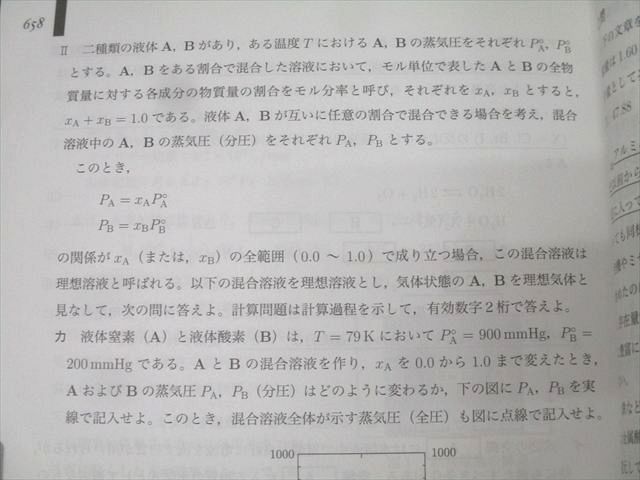 658
II 二種類の液体 A，B があり，ある温度 T における A，B の蒸気圧をそれぞれ P°A，P°B
とする。A，B をある割合で混合した溶液において，モル単位で表した A と B の全物
質量に対する各成分の物質量の割合をモル分率と呼び，それぞれを xA，xB とすると，
xA + xB = 1.0 である。液体 A，B が互いに任意の割合で混合できる場合を考え，混合
溶液中の A，B の蒸気圧（分圧）をそれぞれ PA，PB とする。
このとき，
PA = xAP°A
PB = xBP°B
の関係が xA（または，xB）の全範囲（0.0 ～ 1.0）で成り立つ場合，この混合溶液は
理想溶液と呼ばれる。以下の混合溶液を理想溶液とし，気体状態の A，B を理想気体と
見なして，次の問に答えよ。計算問題は計算過程を示して，有効数字 2 桁で答えよ。
カ 液体窒素（A）と液体酸素（B）は，T = 79 K において P°A = 900 mmHg，P°B =
200 mmHg である。A と B の混合溶液を作り，xA を 0.0 から 1.0 まで変えたとき，
A および B の蒸気圧 PA，PB（分圧）はどのように変わるか，下の図に PA，PB を実
線で記入せよ。このとき，混合溶液全体が示す蒸気圧（全圧）も図に点線で記入せよ。
1000 1000
の文章を
は 1.60
47.88
アルミ